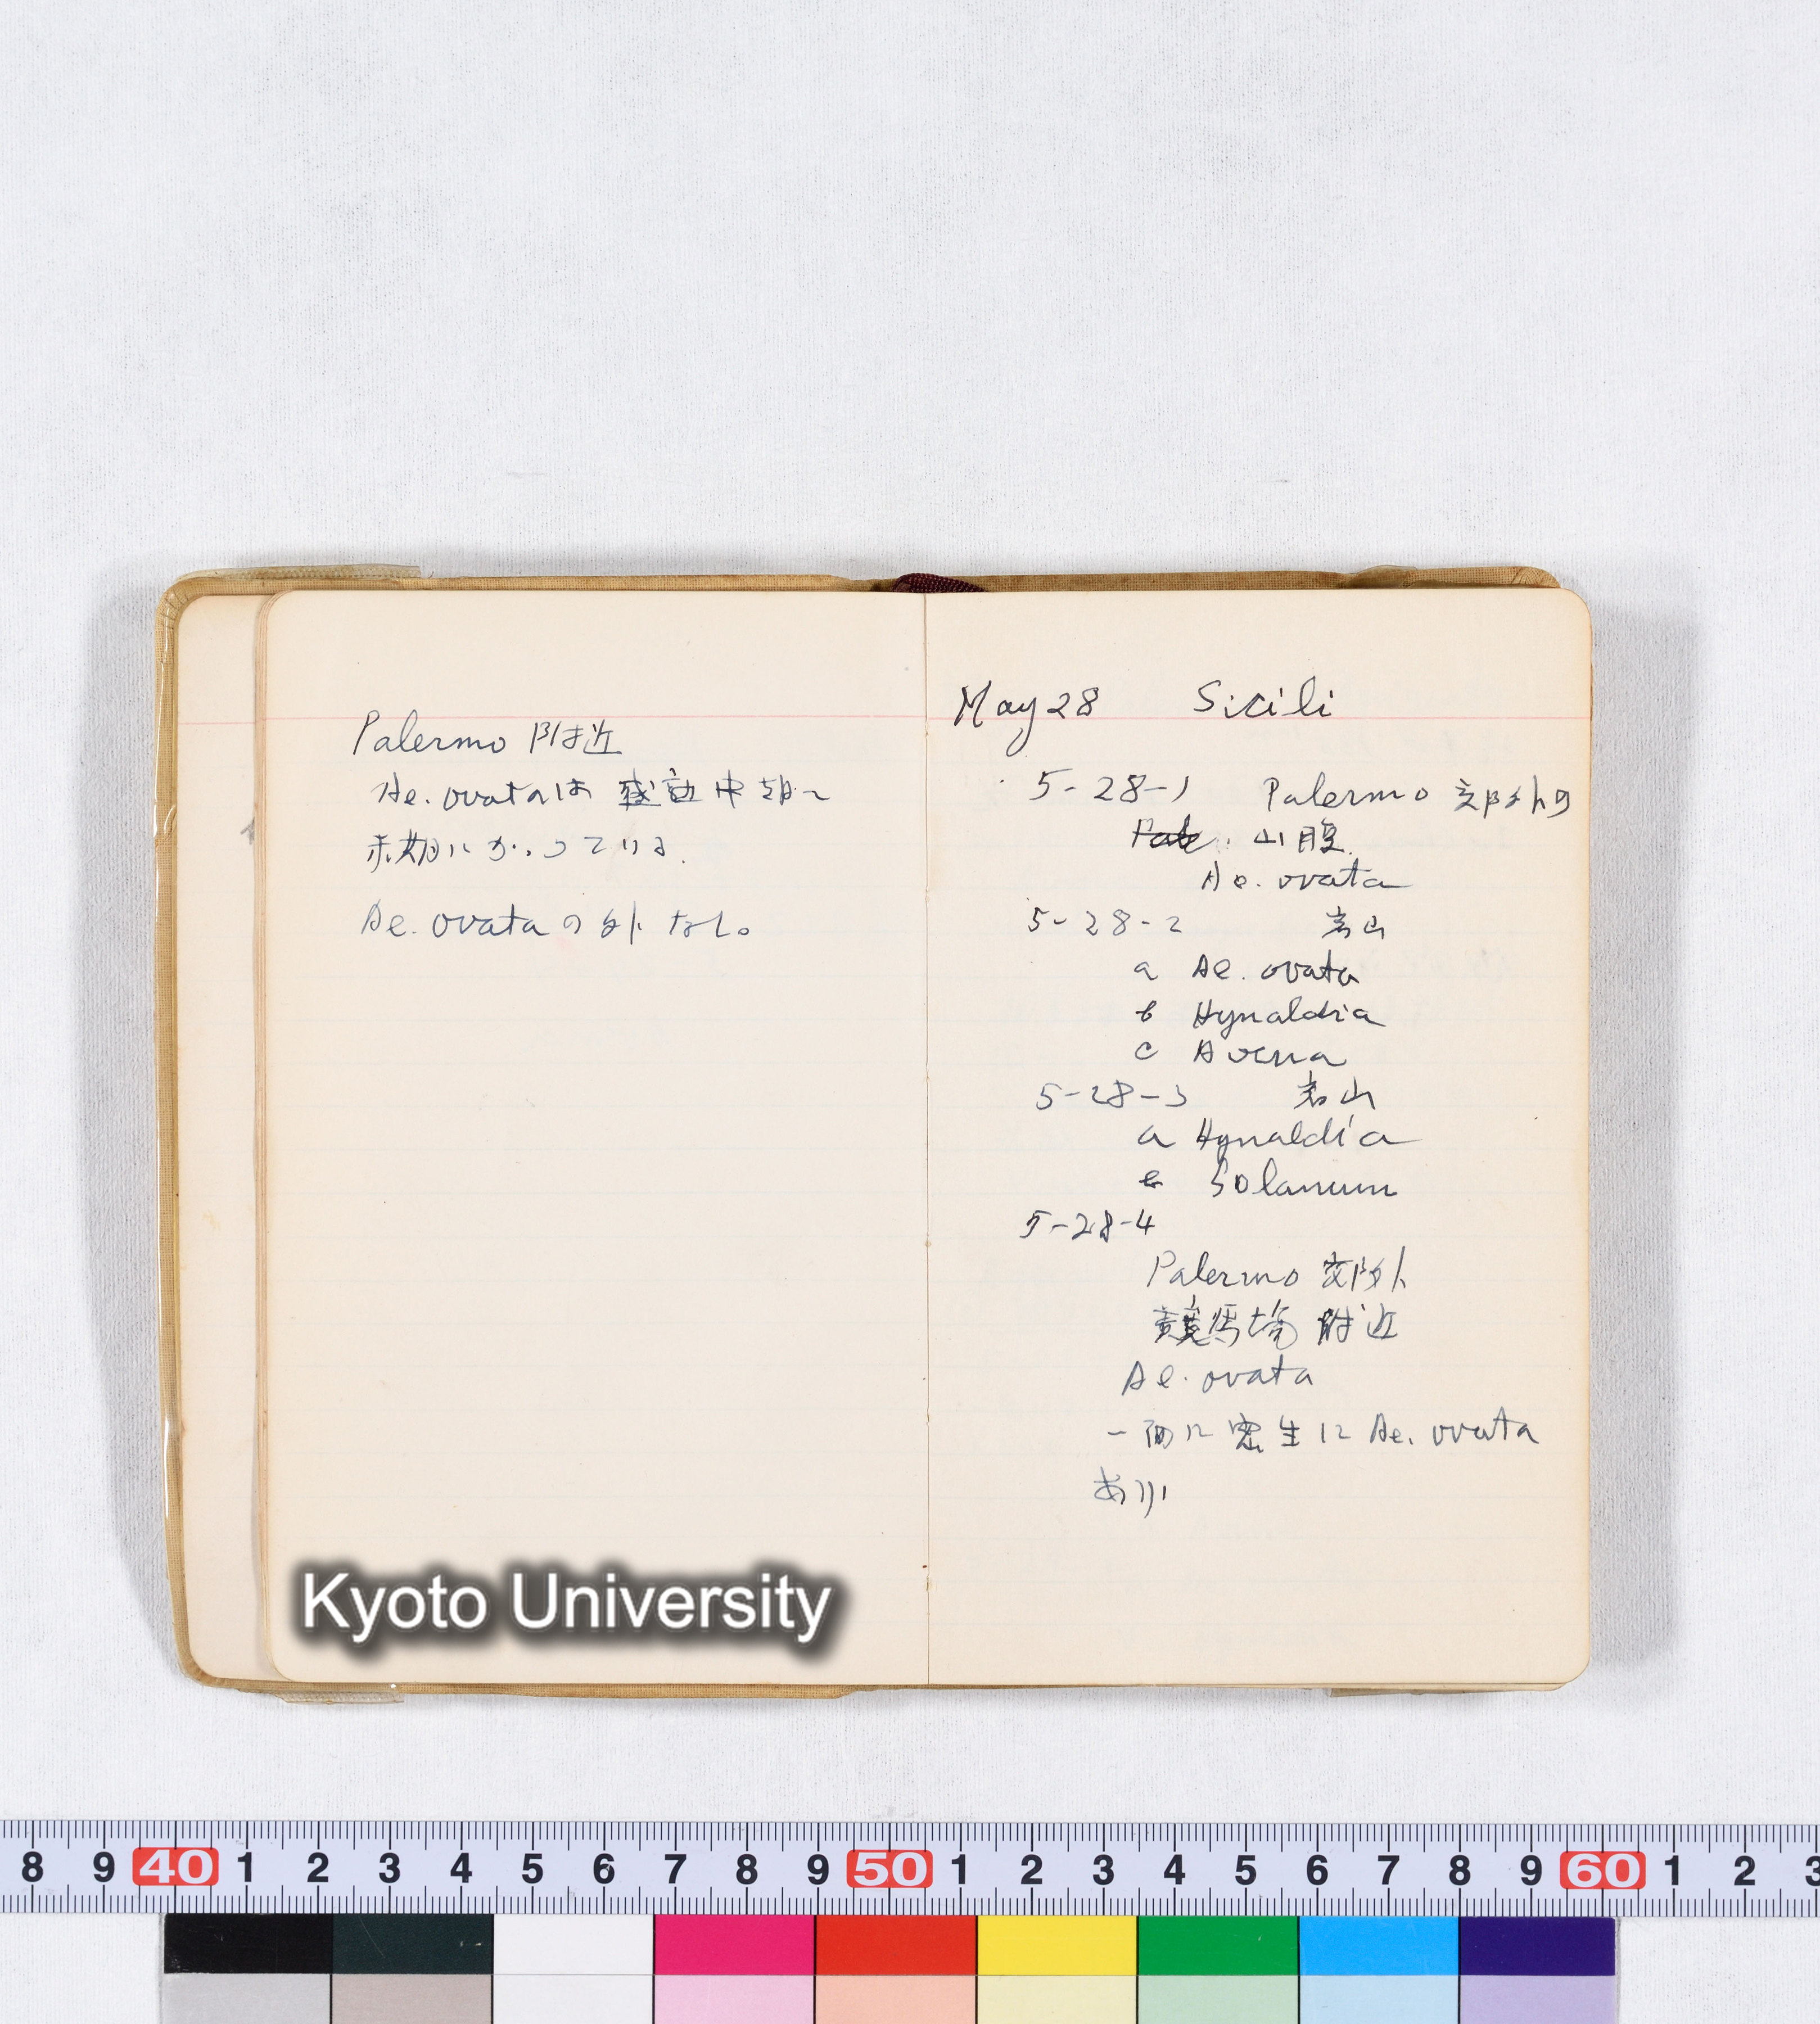 Palermo 附近
Ae. ovataは 中期〜
末期にかゝっている.
Ae. ovataの外なし。
May 28 Sicili
5-28-1 Palermo 郊外の
山腹.
Ae. ovata
5-28-2 岩山
a Ae. ovata
b Hynaldia
c Avena
5-28-3 岩山
a Hynaldia
b Solanum
5-28-4
Palermo 郊外
競馬場 附近
Ae. ovata
一面に密生に Ae. ovata
あり
Kyoto University
8 9 40 1 2 3 4 5 6 7 8 9 50 1 2 3 4 5 6 7 8 9 60 1 2 3